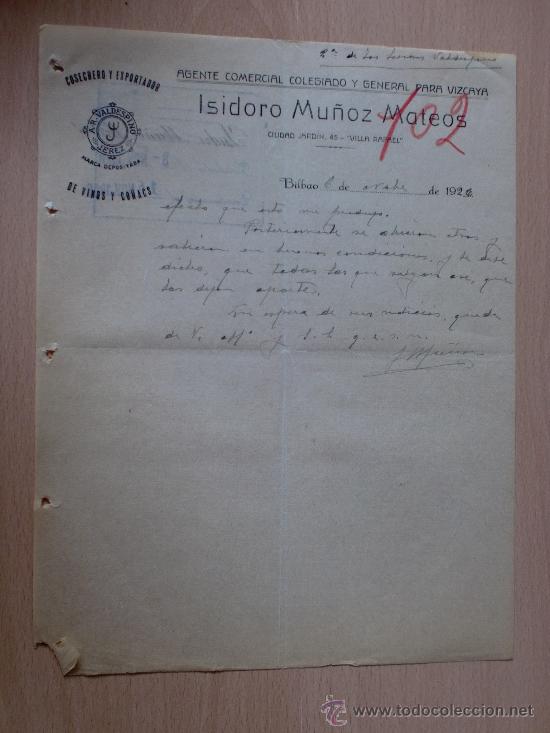 2ª de los Señores Valdespino
COSECHERO Y EXPORTADOR
A.R. VALDESPINO
JEREZ
MARCA DEPOSITADA
DE VINOS Y COÑACS
AGENTE COMERCIAL COLEGIADO Y GENERAL PARA VIZCAYA
Isidoro Muñoz Mateos
102
CIUDAD JARDÍN, 45 - "VILLA RAFAEL"
Bilbao 6 de de 192
efecto que esto me produjo.
Posteriormente se abrieron otras y
salieron en buenas condiciones, y he
dicho, que todas las que salgan asi, que
las dejen aparte.
En espera de sus noticias, queda
de V. affº y s. s. q. e. s. m.
I. Muñoz
todocoleccion
www.todocoleccion.net